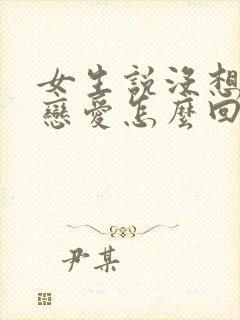 女生說沒想
戀愛怎麼回
尹某